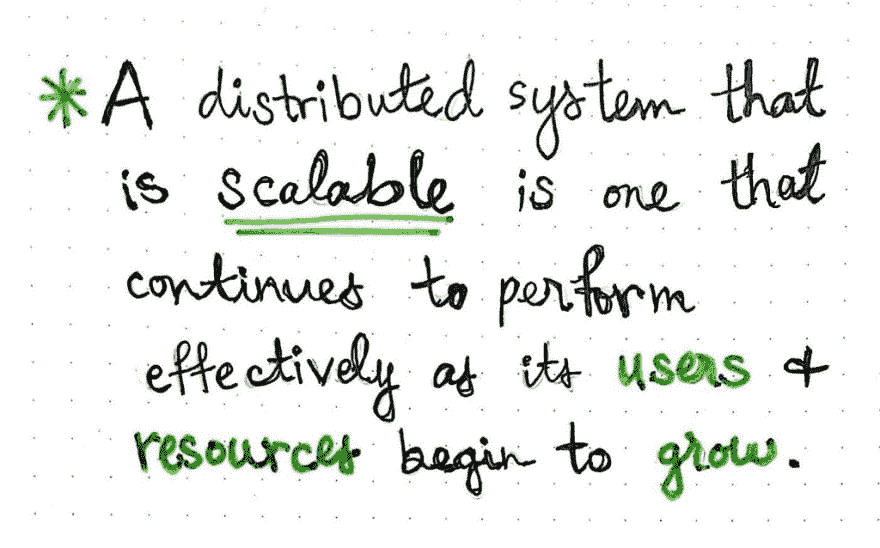 * A distributed system that
is scalable is one that
continues to perform
effectively as its users &
resources begin to grow.